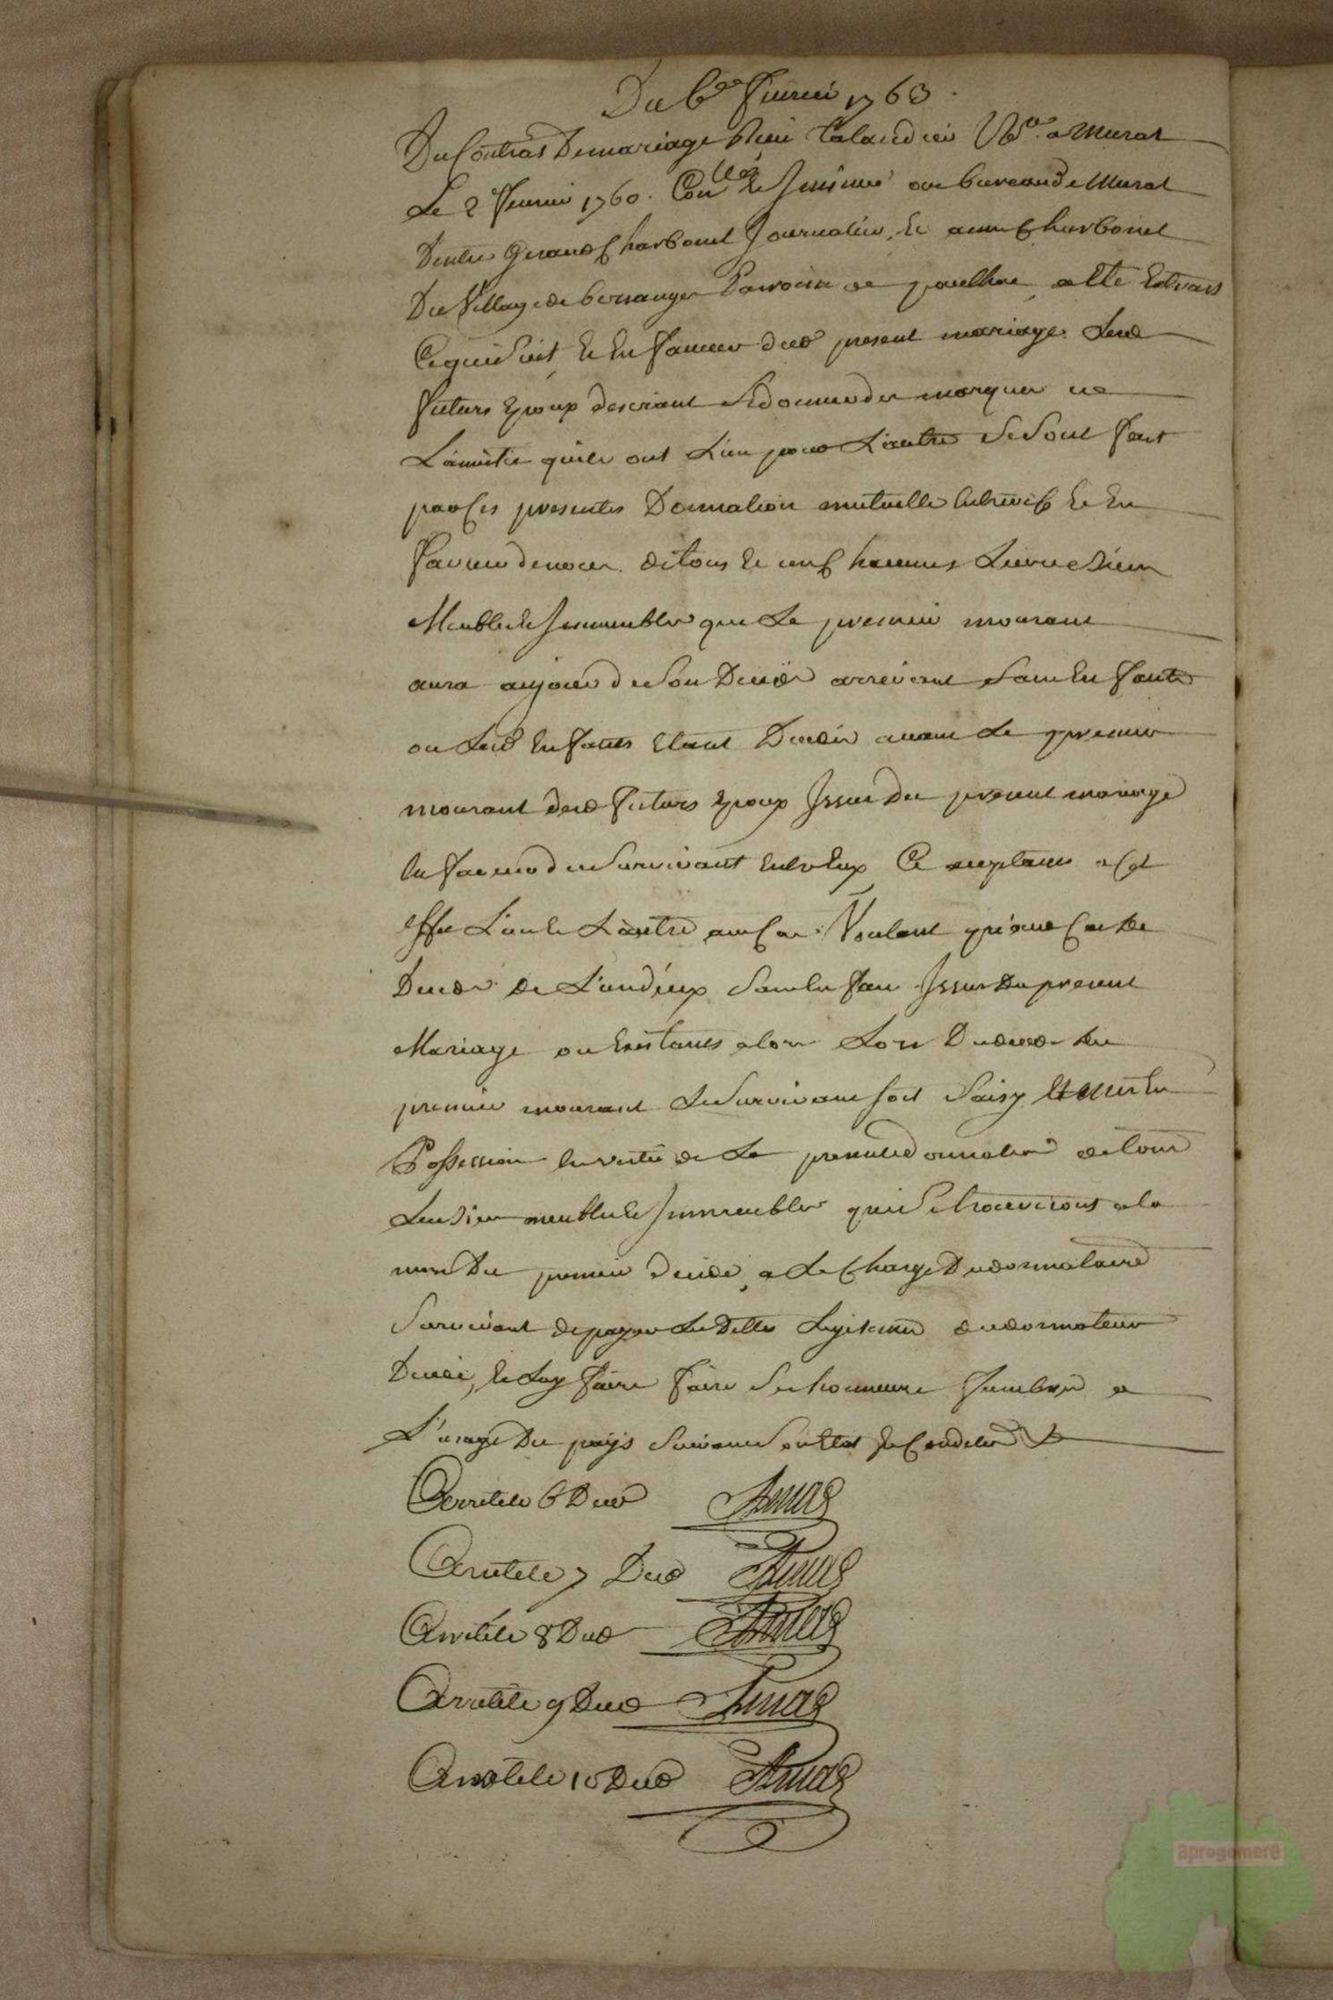 Du 6e feuvrié 1763.
Du Contrat De mariage Reçu Talandier No.re a Murat
Le 2 feuvrié 1760. Con.llé & Insinué au bureau de Murat
D'entre Geraud Charbonel Journalier, & anne Charbonel
Du Village de Paroisse de a Eté Extrait
Ce qui suit, & En faveur dud present mariage Lesd
futurs Epoux desirant Se donner des marques de
L'amitié qu'ils ont L'un pour L'autre Se Sont fait
par Ces presentes Donnation mutuelle Entre & En
faveur de noces de tous & uns Chacuns Leurs Biens
Meubles & Immeubles que Le premier mourant
aura au jour de Son Decés arrivant Sans Enfants
ou Lesd Enfants Etant Decedés avant Le premier
mourant desd futurs Epoux Issus Du present mariage
En faveur du Survivant Entr'Eux Ce acceptants a Cet
Effet L'un & L'autre Voulant qu'au Cas de
Decés de L'un d'eux Sans Enfans Issus Du present
Mariage ou Existants alors Lors Du decés du
premier mourant Le Survivant soit Saisy & mis En
Possession En vertu de La presente donnation de tous
Les Biens meubles & Immeubles qui Se trouveront a la
mort Du premier decedé, a La Charge Du donnataire
Survivant de payer Les Dettes Legitimes du donnateur
Decedé, & Luy faire faire Ses honneurs funebres a
L'usage Du pays Suivant Son Etat & Condition
Arretté le 6 Dud Amat
Arretté le 7 Dud Amat
Arretté le 8 Dud Amat
Arretté le 9 Dud Amat
Arretté le 10 Dud Amat
aprogemere